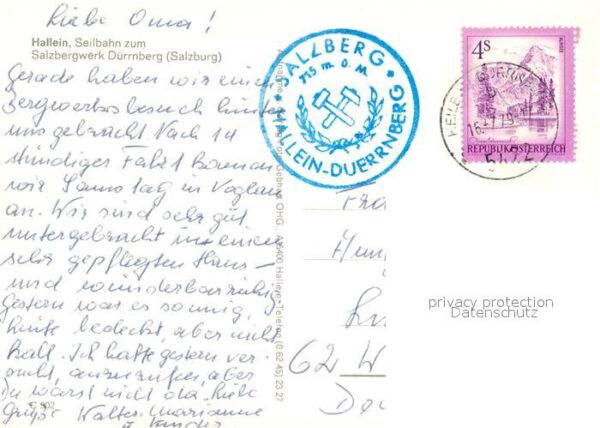 Liebe Oma!
Hallein, Seilbahn zum
Salzbergwerk Dürrnberg (Salzburg)
Gerade haben wir einen
Bergwerksbesuch hinter
uns gebracht. Nach 14
stündiger Fahrt kamen
wir Samstag in
an. Wir sind sehr gut
untergebracht in einem
sehr gepflegten Haus –
und wunderbar ruhig
Gestern war es sonnig,
heute bedeckt, aber nicht
kalt. Ich hatte gestern ver-
sucht, anzurufen, aber
Du warst nicht da. Liebe
Grüße Walter, Marianne
u. Kinder
C 902
OHG., A-5400 Hallein, Telefon (0 62 45) 23 27
SALZBERG
715 m. ü. M.
HALLEIN-DUERRNBERG
4S
REPUBLIK ÖSTERREICH
16.-7.79
62 W
privacy protection
Datenschutz